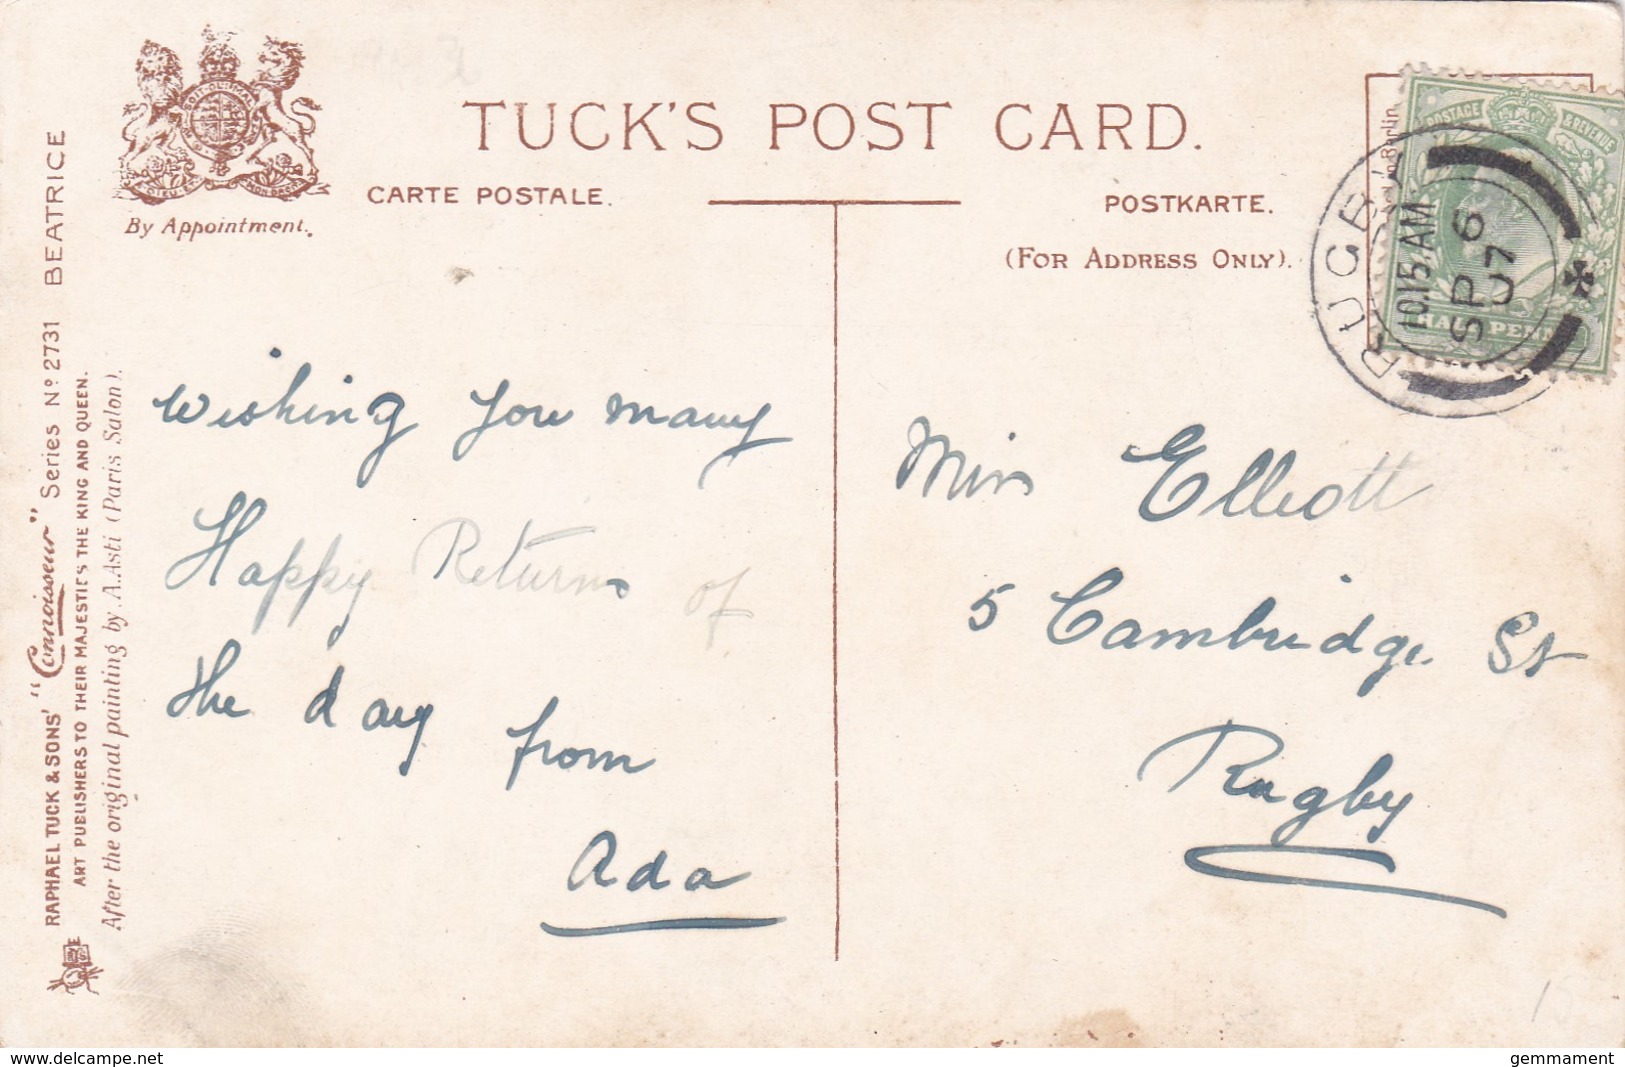 TUCK'S POST CARD.
CARTE POSTALE.
POSTKARTE.
(FOR ADDRESS ONLY).
By Appointment.
RAPHAEL TUCK & SONS' "Connoisseur" Series Nº 2731 BEATRICE
ART PUBLISHERS TO THEIR MAJESTIES THE KING AND QUEEN.
After the original painting by A.Asti (Paris Salon).
POSTAGE & REVENUE
HALFPENNY
RUGBY
10.15 AM
SP 6
07
Berlin
wishing you many
Happy Returns of
the day from
Ada
Miss Elliott
5 Cambridge St
Rugby
delcampe.net
gemmament